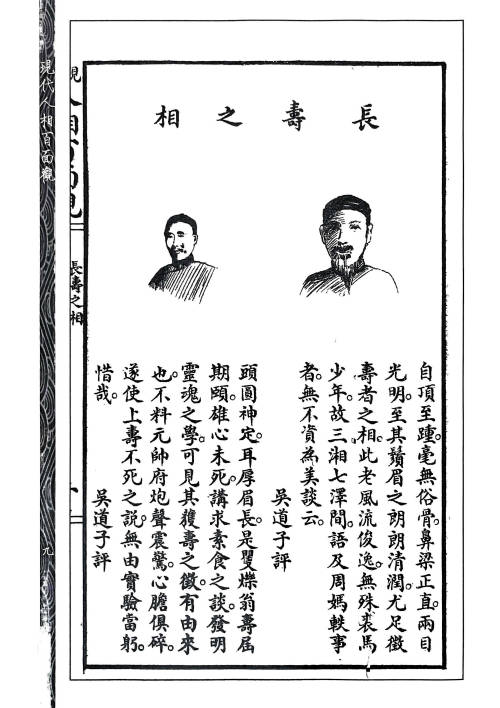 現代人相百面觀
長壽之相
九
長壽之相
自頂至踵。毫無俗骨。鼻梁正直。兩目
光明。至其鬚眉之朗朗清潤。尤足徵
壽者之相。此老風流俊逸。無殊裘馬
少年。故三湘七澤間。語及周媽軼事
者。無不資為美談云。
吳道子評
頭圓神定。耳厚眉長。是矍爍翁壽屆
期頤。雄心未死。講求素食之談。發明
靈魂之學。可見其獲壽之徵。有由來
也。不料元帥府炮聲震驚。心膽俱碎。
遂使上壽不死之說。無由實驗當躬。
惜哉。
吳道子評